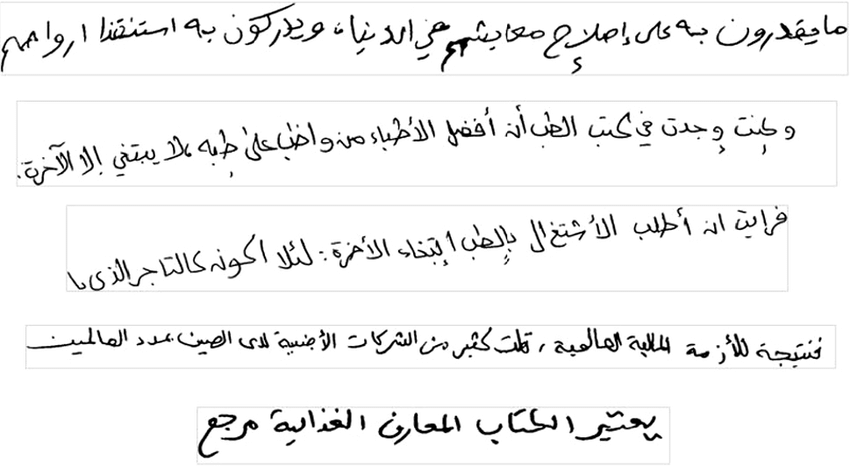 ما يقدرون به على إصلاح معايشهم في الدنيا، ويدركون به استنقذا ارواحهم
وكنت وجدت في كتب الطب أن أفضل الأطباء من واظب على طبه، لا يبتغي إلا الآخرة.
فرايت ان أطلب الأشتغال بالطب ابتغاء الأخرة: لئلا اكون كالتاجر الذي با
فنتيجة للأزمة المالية العالمية، قلت كثير من الشركات الأجنبية لدى الصين عدد العالمين
يعتبر الكتاب المعارف الغذائية مرجع